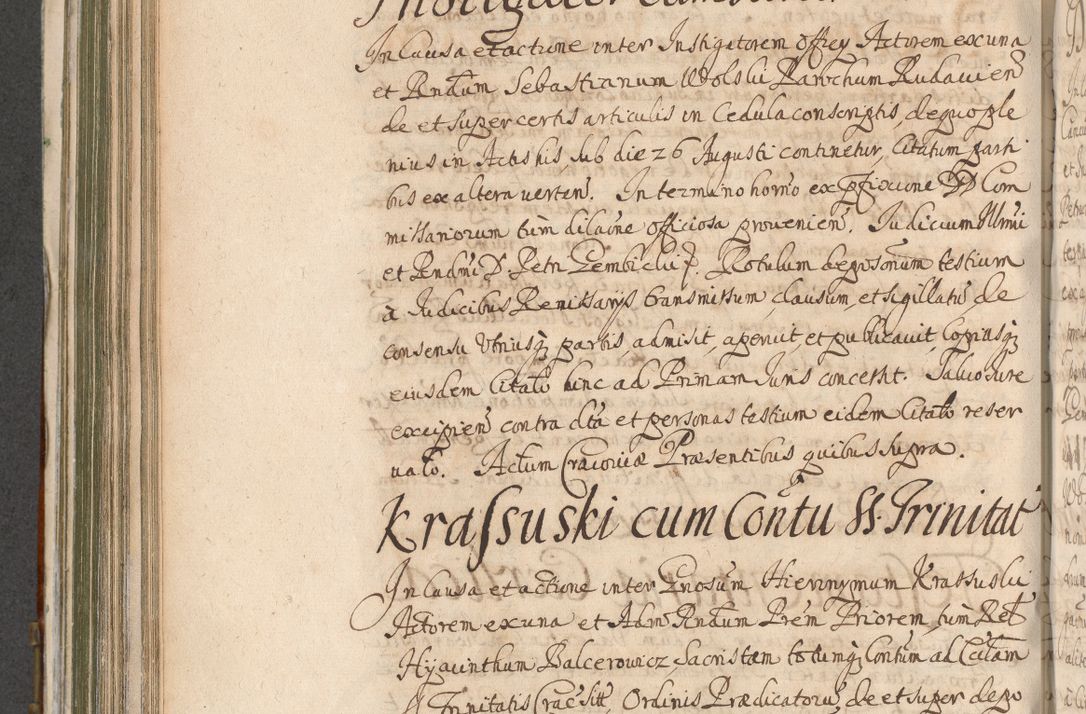 In Causa et actione inter Instigatorem Offcy Actorem ex una
et Rndum Sebastianum Wolski Parochum Rudavien
de et super certis articulis in Cedula conscriptis, de quo ple
nius in Actis his sub die 26 Augusti continetur, Citatum parti
bis ex altera verten. In termino horno ex pfixione DD Com
missariorum tum dilaone officiosa provenien. Judicium Illmi
et Rndmi D Petri Gembicki p. Rotulum deposonum testium
a Judicibus Remissarys transmissum, clausum, et sigillatu de
consensu Utriusq partis, admisit, aperuit, et publicavit, Copiasq
eiusdem Citato hinc ad Primam Juris concessit. Salvo Jure
excipien contra dta et personas testium eidem Citato reser
vato. Actum Cracoviæ Præsentibus quibus supra.
Krassuski cum Contu SS. Trinitat
In Causa et actione inter Gnosum Hieronymum Krassuski
Actorem ex una et Adm Rndum Prem Priorem, tum Rel
Hyacinthum Balcerowicz Sacristam totumq Contum ad Ecclam
S Trinitatis Crac sitt, Ordinis Prædicatoru, de et super depo